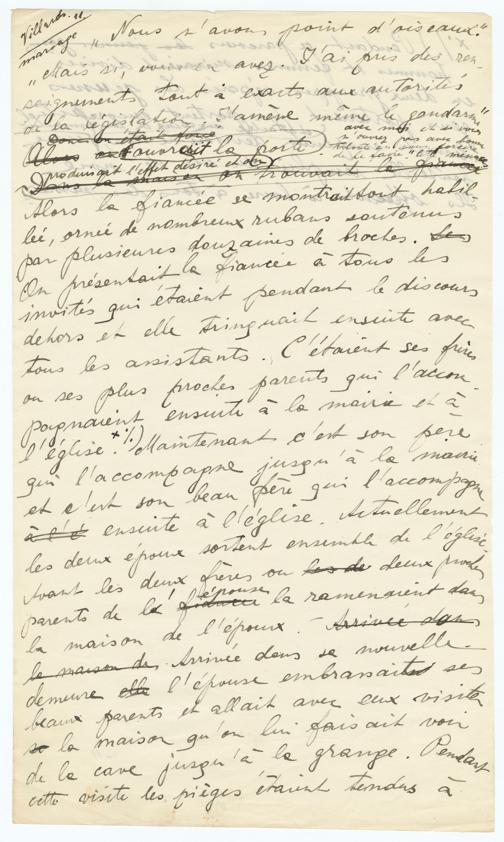 Villarbs. 11
mariage
"Nous n'avons point d'oiseaux."
"Mais si, vous en avez. J'ai pris des ren-
seignements tout à exacts aux autorités
de la législation. J'amène même le gendarme"
avec moi et si vous
n'ouvrez pas avec
Alors on l'ouvrait la porte
produisait l'effet désiré et on
Dans la maison on trouvait la
Alors la fiancée se montrait tout habil-
lée, ornée de nombreux rubans soutenus
par plusieures douzaines de broches. Les
On présentait la fiancée à tous les
invités qui étaient pendant le discours
dehors et elle trinquait ensuite avec
tous les assistants. C'étaient ses frères
ou ses plus proches parents qui l'accom-
pagnaient ensuite à la mairie et à
l'église. Maintenant c'est son père
qui l'accompagne jusqu'à la mairie
et c'est son beau père qui l'accompagne
à l'é ensuite à l'église. Actuellement
les deux époux sortent ensemble de l'église
Avant les deux frères ou les de deux proches
parents de l'épouse fiancée la ramenaient dans
la maison de l'époux. - Arrivée dans
la maison de Arrivée dans sa nouvelle
demeure elle l'épouse embrassait ses
beaux parents et allait avec eux visiter
sa la maison qu'on lui faisait voir
de la cave jusqu'à la grange. Pendant
cette visite les pièges étaient tendus à